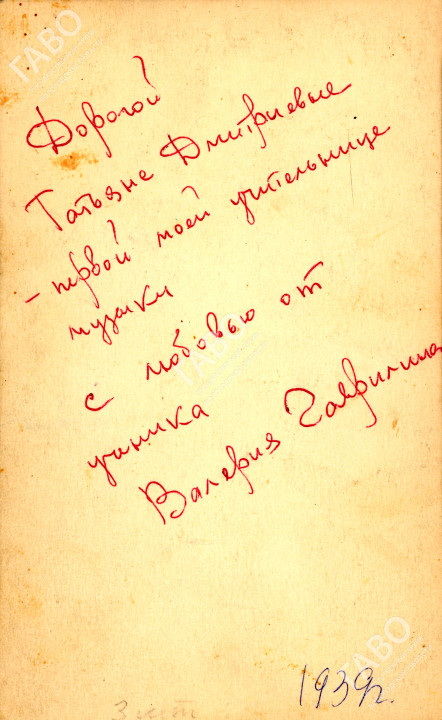 Дорогой
Татьяне Дмитриевне
- первой моей учительнице
музыки
с любовью от
ученика
Валерия Гаврилина
1939г.
ГАВО
ГАВО
ГАВО